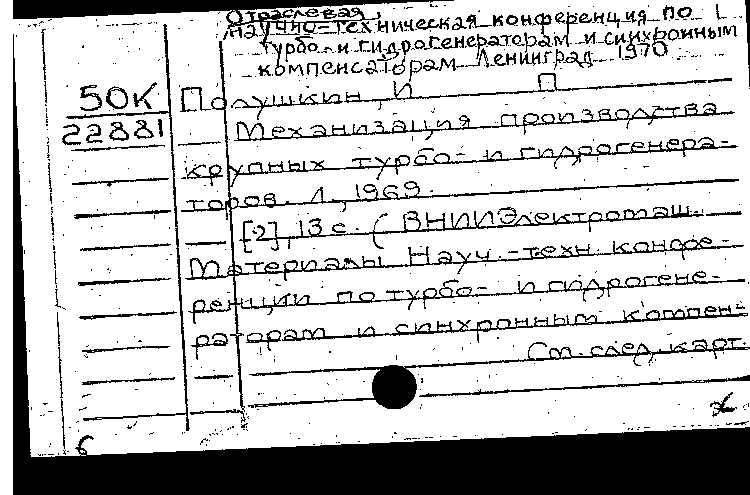 Отраслевая
научно-техническая конференция по
турбо- и гидрогенераторам и синхронным
компенсаторам Ленинград 1970
50К Полушкин, И. П.
22881 Механизация производства
крупных турбо- и гидрогенера-
торов. Л., 1969.
[2], 13 с. (ВНИИЭлектромаш.
Материалы Науч.-техн. конфе-
ренции по турбо- и гидрогене-
раторам и синхронным компен-
См. след. карт.
6